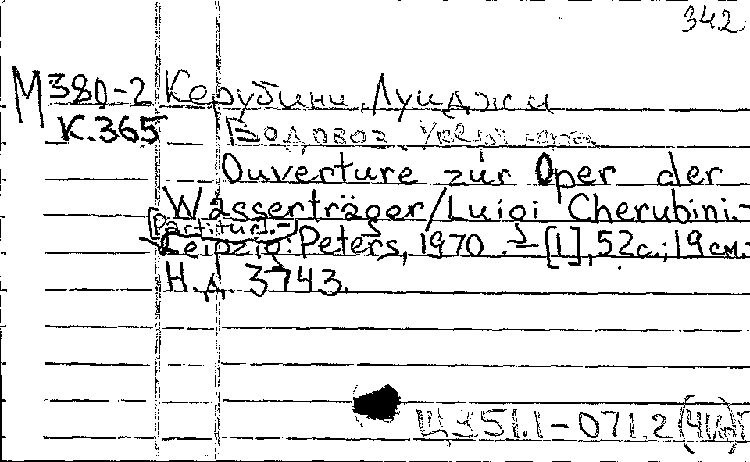 342
М380-2 Керубини, Луиджи
К.365 Водовоз. Увертюра
Ouverture zur Oper der
Wasserträger/Luigi Cherubini.-
[Partitur].-
Leipzig: Peters, 1970.-[1], 52с.; 19см.-
Н.д. 3743.
Щ 951.1-071.2(4Ит)